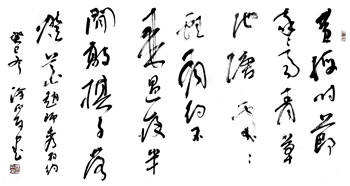 黄梅时节
家家雨青草
池塘处处
蛙有约不
来过夜半
闲敲棋子落
灯花 赵师秀有约
癸巳冬